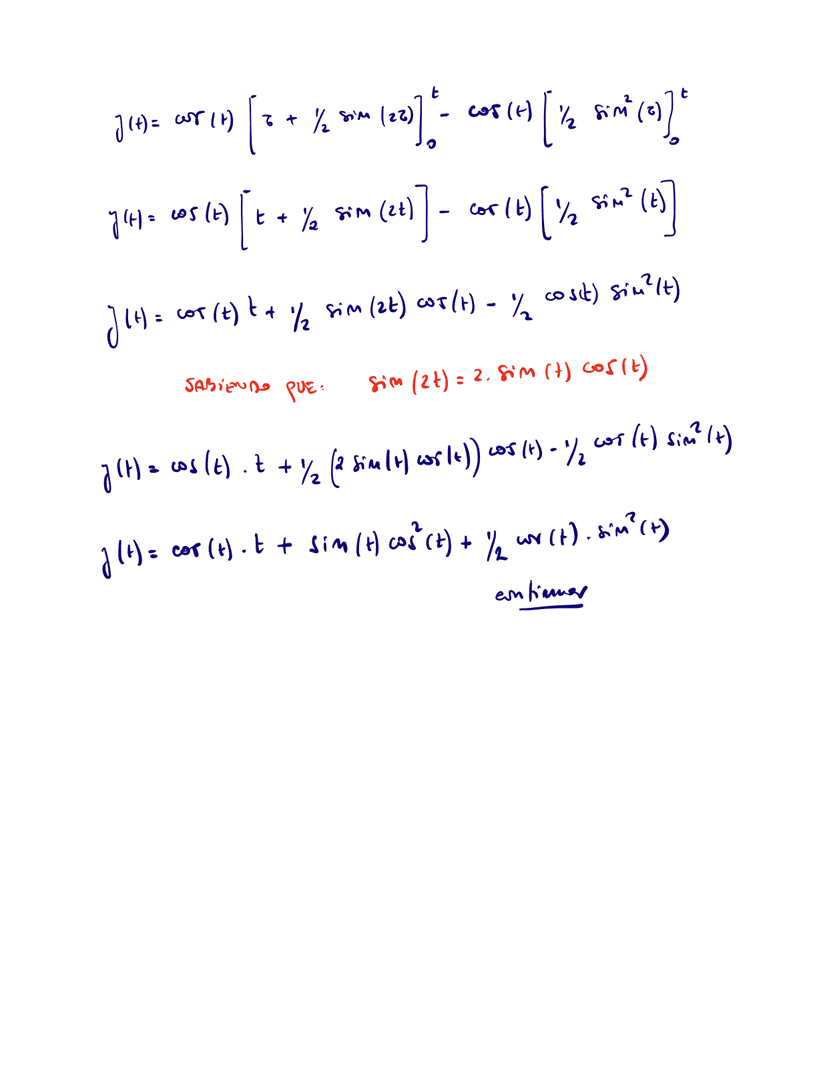 y(t) = cos(t) [τ + 1/2 sin(2τ)]₀ᵗ - cos(t) [1/2 sin²(τ)]₀ᵗ
y(t) = cos(t) [t + 1/2 sin(2t)] - cos(t) [1/2 sin²(t)]
y(t) = cos(t) t + 1/2 sin(2t) cos(t) - 1/2 cos(t) sin²(t)
SABIENDO QUE: sin(2t) = 2. sin(t) cos(t)
y(t) = cos(t) . t + 1/2 (2 sin(t) cos(t)) cos(t) - 1/2 cos(t) sin²(t)
y(t) = cos(t) . t + sin(t) cos²(t) + 1/2 cos(t) . sin²(t)
continuar